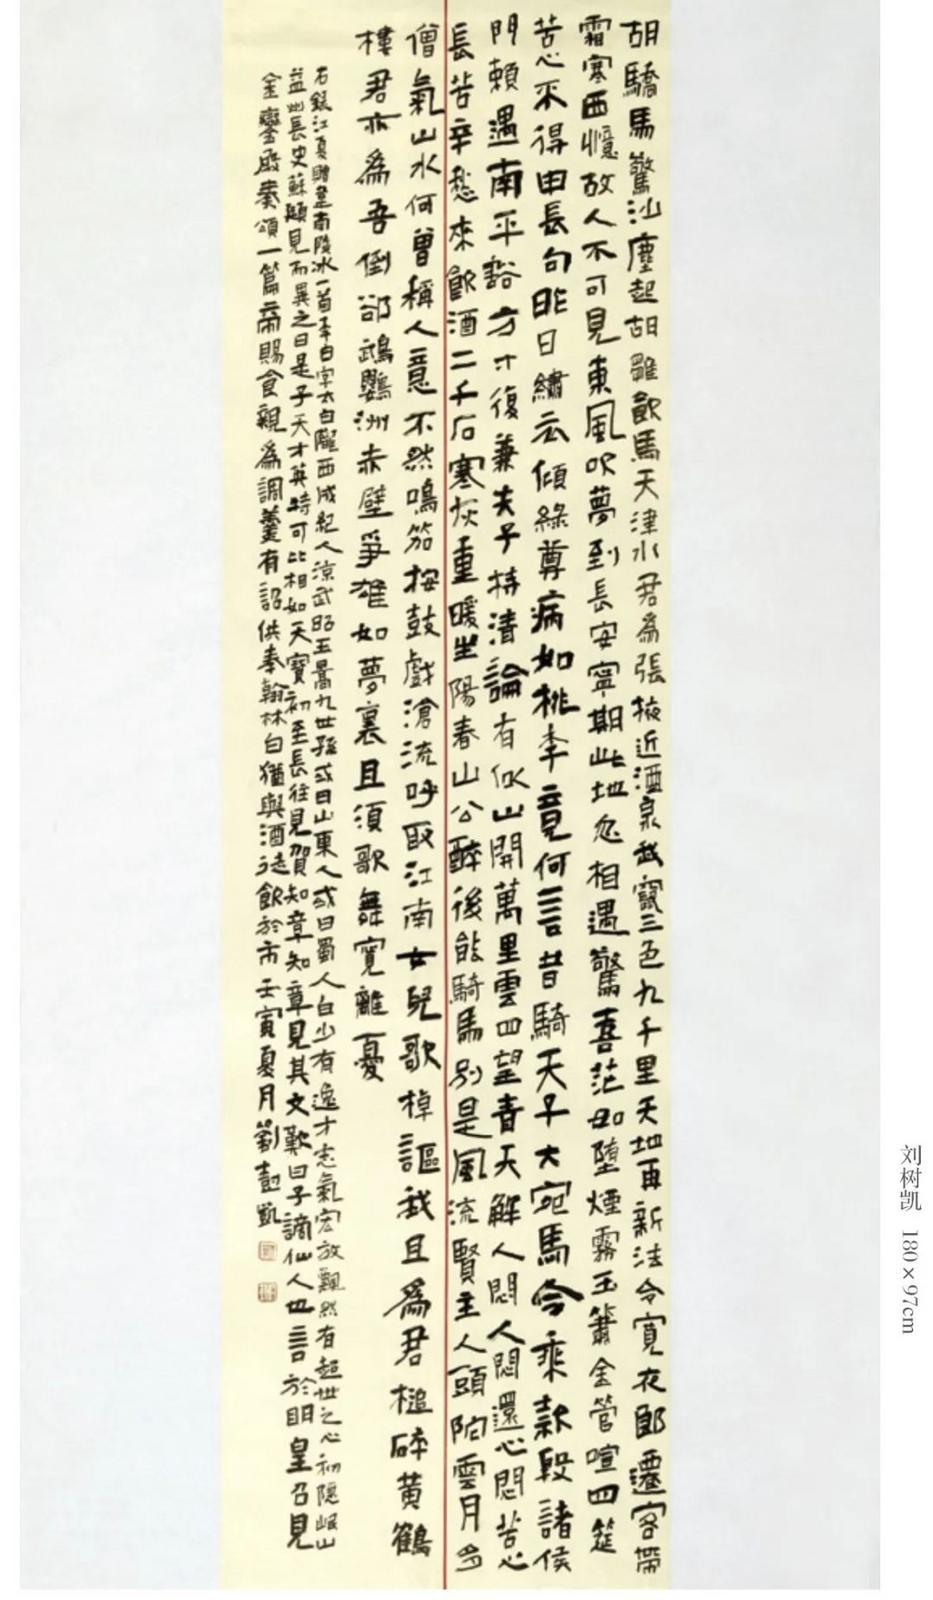 胡驕馬驚沙塵起胡雛飲馬天津水君為張掖近酒泉我竄三色九千里天地再新法令寬夜郎遷客帶
霜寒西憶故人不可見東風吹夢到長安寧期此地忽相遇驚喜茫如墮煙霧玉簫金管喧四筵
苦心不得申長句昨日繡衣傾綠尊病如桃李竟何言昔騎天子大宛馬今乘款段諸侯
門賴遇南平豁方寸復兼夫子持清論有似山開萬里雲四望青天解人悶人悶還心悶苦心
長苦辛愁來飲酒二千石寒灰重暖生陽春山公醉後能騎馬別是風流賢主人頭陀雲月多
僧氣山水何曾稱人意不然鳴笳按鼓戲滄流呼取江南女兒歌棹謳我且為君槌碎黃鶴
樓君亦為吾倒卻鵡鸚洲赤壁爭雄如夢裏且須歌舞寬離憂
右錄江夏贈韋南陵冰一首李白字太白隴西成紀人涼武昭王暠九世孫或曰山東人或曰蜀人白少有逸才志氣宏放飄然有超世之心初隱岷山
益州長史蘇頲見而異之曰是子天才英特可比相如天寶初至長往見賀知章知章見其文歎曰子謫仙人也言於明皇召見
金鑾殿奏頌一篇帝賜食親為調羹有詔供奉翰林白猶與酒徒飲於市壬寅夏月劉尌凱
刘树凯 180×97cm